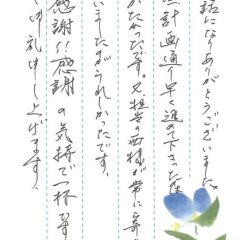 話になりありがとうございました。
計画通り早く進めて下さった
かったです。又、担当の皆様が常に
いましたがうれしかったです。
感謝!!感謝の気持で一杯です
く御礼申し上げます。